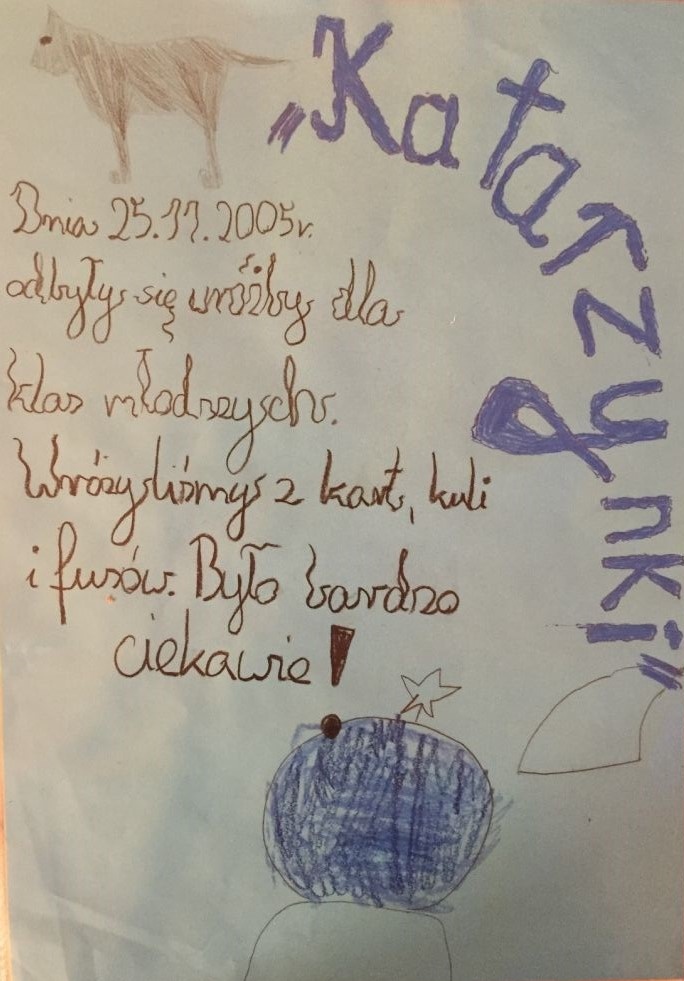 „Katarzynki"
Dnia 25.11.2005r.
odbyły się wróżby dla
klas młodszych.
Wróżyliśmy z kart, kuli
i fusów. Było bardzo
ciekawie!